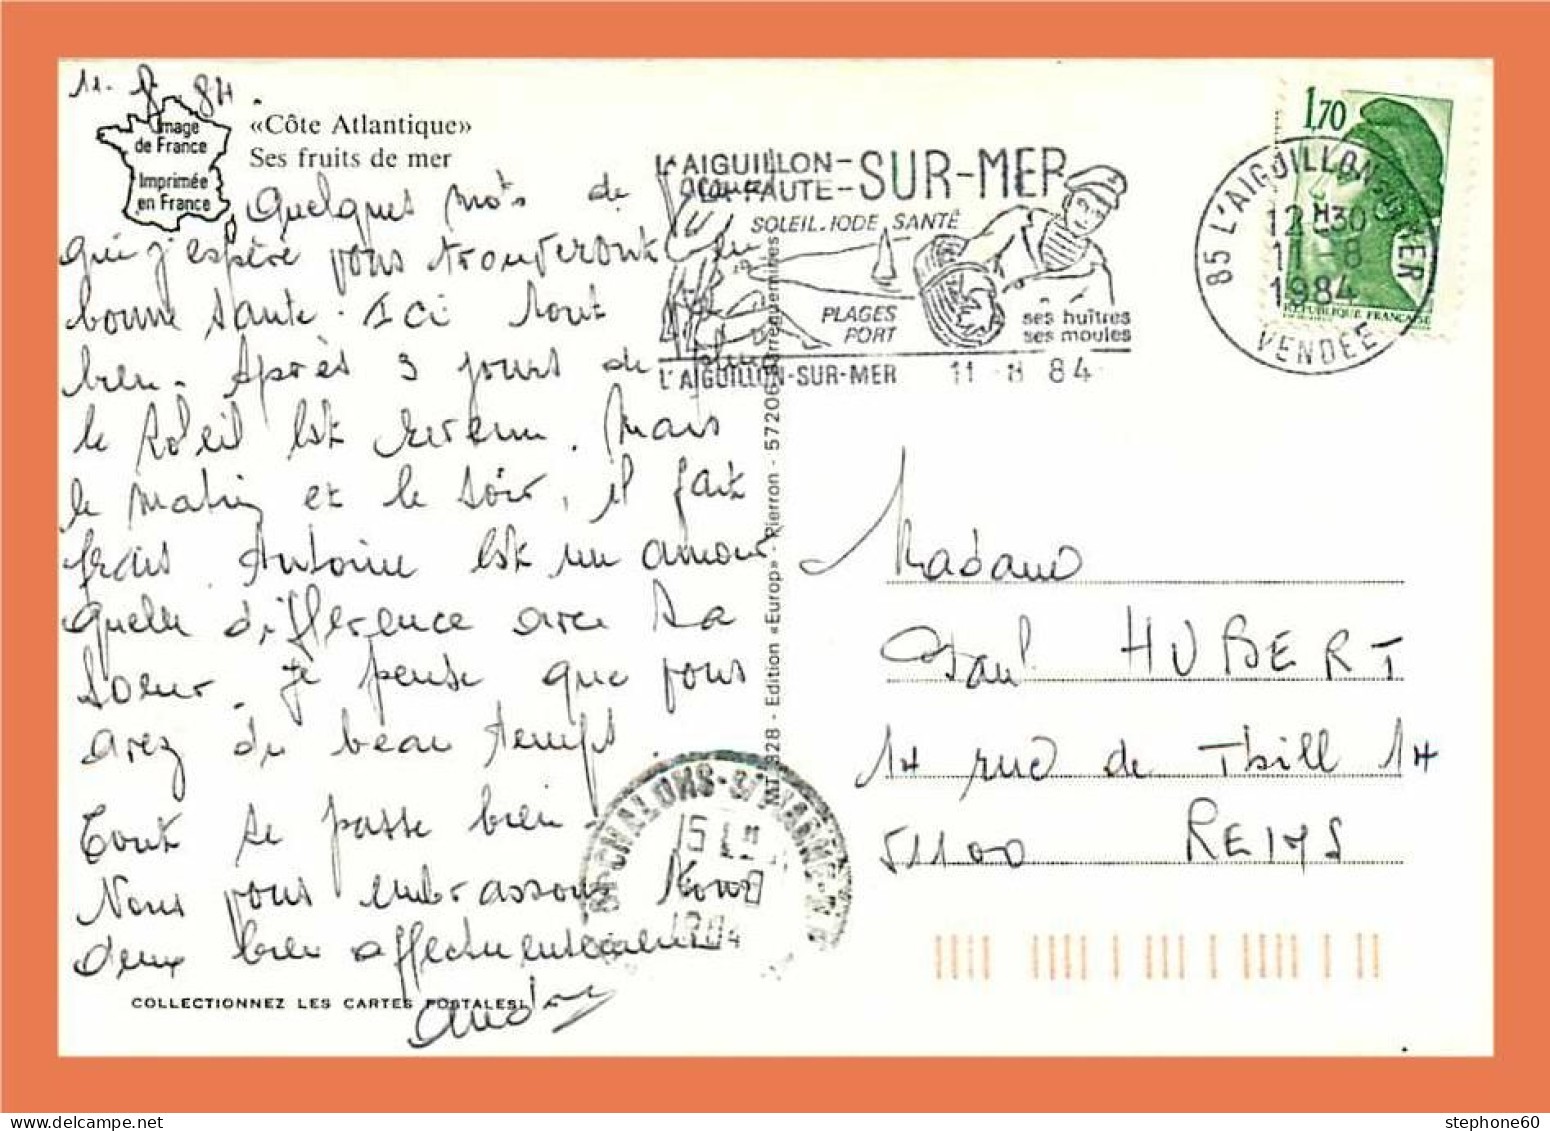 11. 8. 84.
Image
de France
Imprimée
en France
«Côte Atlantique»
Ses fruits de mer
Quelques mots de
qui j'espère vous trouveront en
bonne santé. Ici tout
bien. Après 3 jours de pluie
le soleil est revenu. Mais
le matin et le soir, il fait
frais. Antoine est un amour
quelle difference avec sa
soeur. Je pense que vous
avez du beau temps.
Tout se passe bien.
Nous vous embrassons tous
deux bien affectueusement
COLLECTIONNEZ LES CARTES POSTALES!
L'AIGUILLON-
LA FAUTE-SUR-MER
SOLEIL.IODE SANTÉ
PLAGES
PORT
ses huîtres
ses moules
L'AIGUILLON-SUR-MER 11 -8 84
1,70
RÉPUBLIQUE FRANÇAISE
85 L'AIGUILLON-SUR-MER
12H30
11-8
1984
VENDÉE
328 - Edition «Europ» - Pierron - 57206 Sarreguemines
Madame
Paul HUBERT
14 rue de Thill 14
51100 REIMS
CHALONS-S/MARNE
15
stephone60